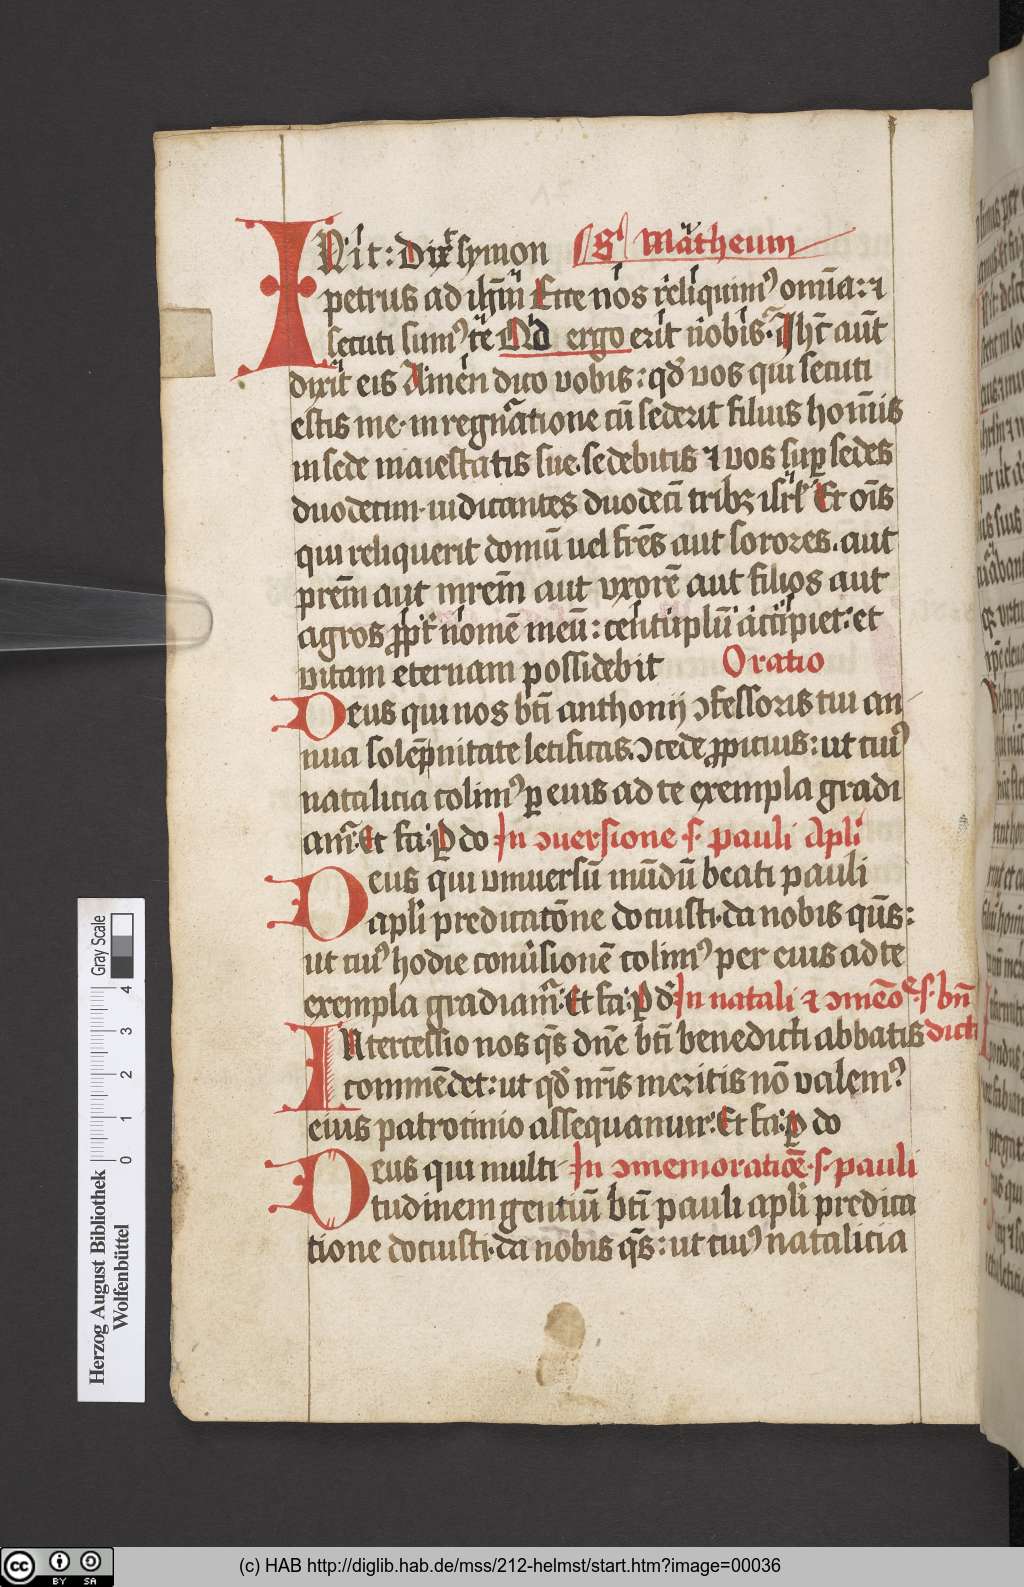 IN it: Dix̄ symon S Matheum
petrus ad ihm̄ Ecce nos reliquimꝰ om̄ia: ⁊
secuti sumꝰ te Qd ergo erit nobis. Ihc̄ aut̄
dixit eis Amen dico vobis: qđ vos qui secuti
estis me. in regnatione cū sederit filius homīs
in sede maiestatis sue. sedebitis ⁊ vos suꝑ sedes
duodecim. iudicantes duodecī tribꝫ isrl̄ Et oīs
qui reliquerit domū uel frēs aut sorores. aut
prēm aut mrēm aut vxorē aut filios aut
agros ꝓpt̄ nomē meū: centuplū accipiet: et
vitam eternam possidebit Oratio
Deus qui nos bt̄i anthonij ↄfessoris tui an
nua solēpnitate letificas. ↄcede ꝓpicius: ut cuiꝰ
natalicia colimꝰ ꝑ eius ad te exempla gradi
am̄. Et fa: P do In ↄuersione s. pauli Apl̄i
Deus qui vniuersū mūdū beati pauli
apl̄i predicatōne docuisti. da nobis qūs:
ut cuiꝰ hodie conūsionē colimꝰ per eius ad te
exempla gradiam̄. Et fa: P d. In natali ⁊ ↄmēoe. s. bn̄
INtercessio nos qs̄ dn̄e bt̄i benedicti abbatis dicti
commēdet: ut qđ nr̄is meritis nō valemꝰ
eius patrocinio assequamur. Et fa: P do
Deus qui multi In ↄmemoratiōe. s. pauli
tudinem gentiū bt̄i pauli apl̄i predica
tione docuisti. da nobis qs̄: ut cuiꝰ natalicia
Herzog August Bibliothek
Wolfenbüttel
0 1 2 3 4
Gray Scale
cc BY SA
(c) HAB http://diglib.hab.de/mss/212-helmst/start.htm?image=00036